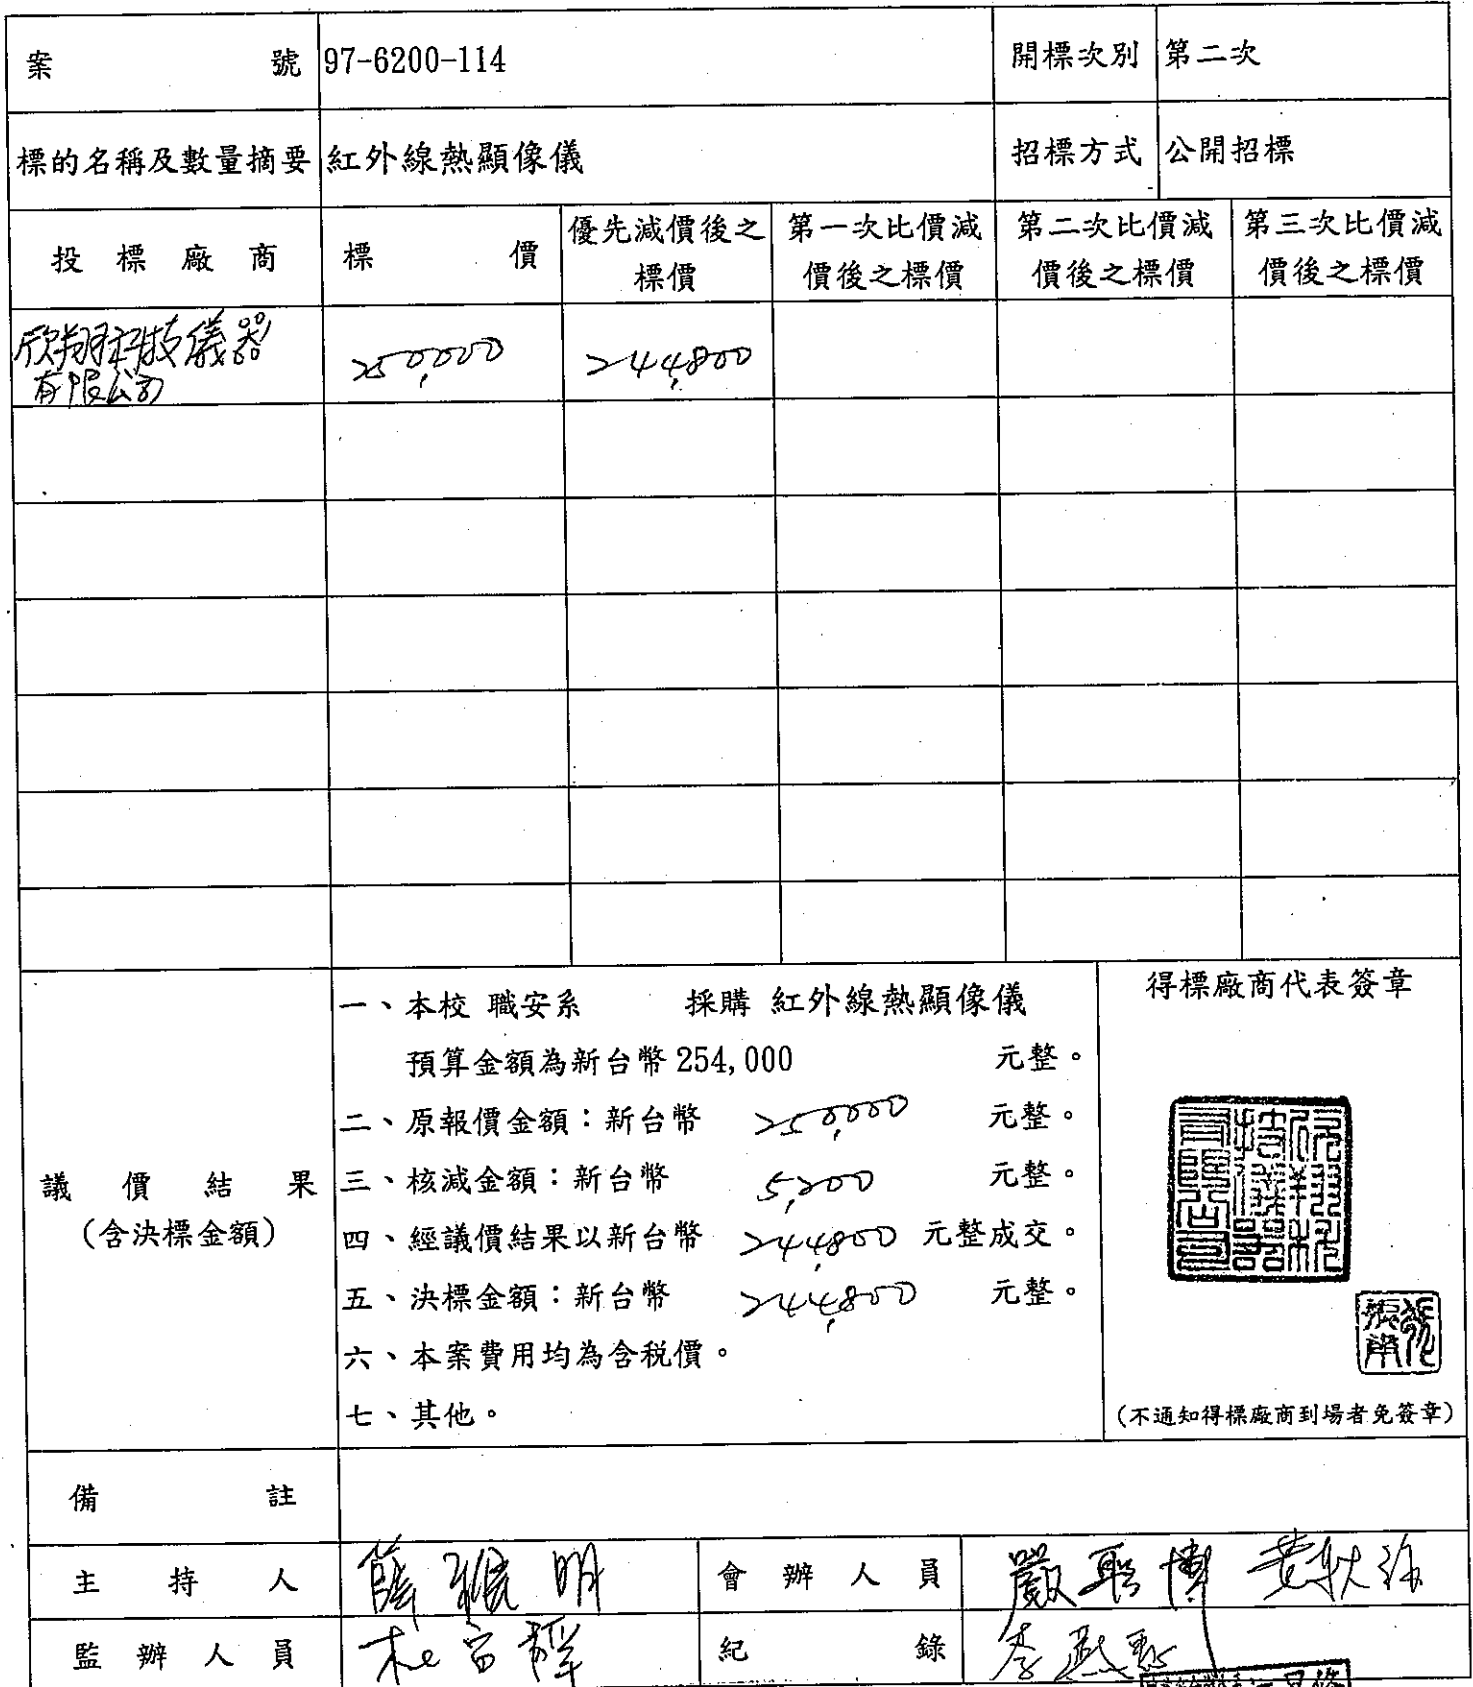 案號 97-6200-114 開標次別 第二次
標的名稱及數量摘要 紅外線熱顯像儀 招標方式 公開招標
投標廠商 標價 優先減價後之標價 第一次比價減價後之標價 第二次比價減價後之標價 第三次比價減價後之標價
欣翔科技儀器
有限公司
250,000 244,800
一、本校 職安系 採購 紅外線熱顯像儀
預算金額為新台幣254,000 元整。
二、原報價金額：新台幣 250,000 元整。
三、核減金額：新台幣 5,200 元整。
四、經議價結果以新台幣 244,800 元整成交。
五、決標金額：新台幣 244,800 元整。
六、本案費用均為含稅價。
七、其他。
議價結果
(含決標金額)
得標廠商代表簽章
(不通知得標廠商到場者免簽章)
備註
主持人 會辦人員 嚴 博
監辦人員 紀錄 李